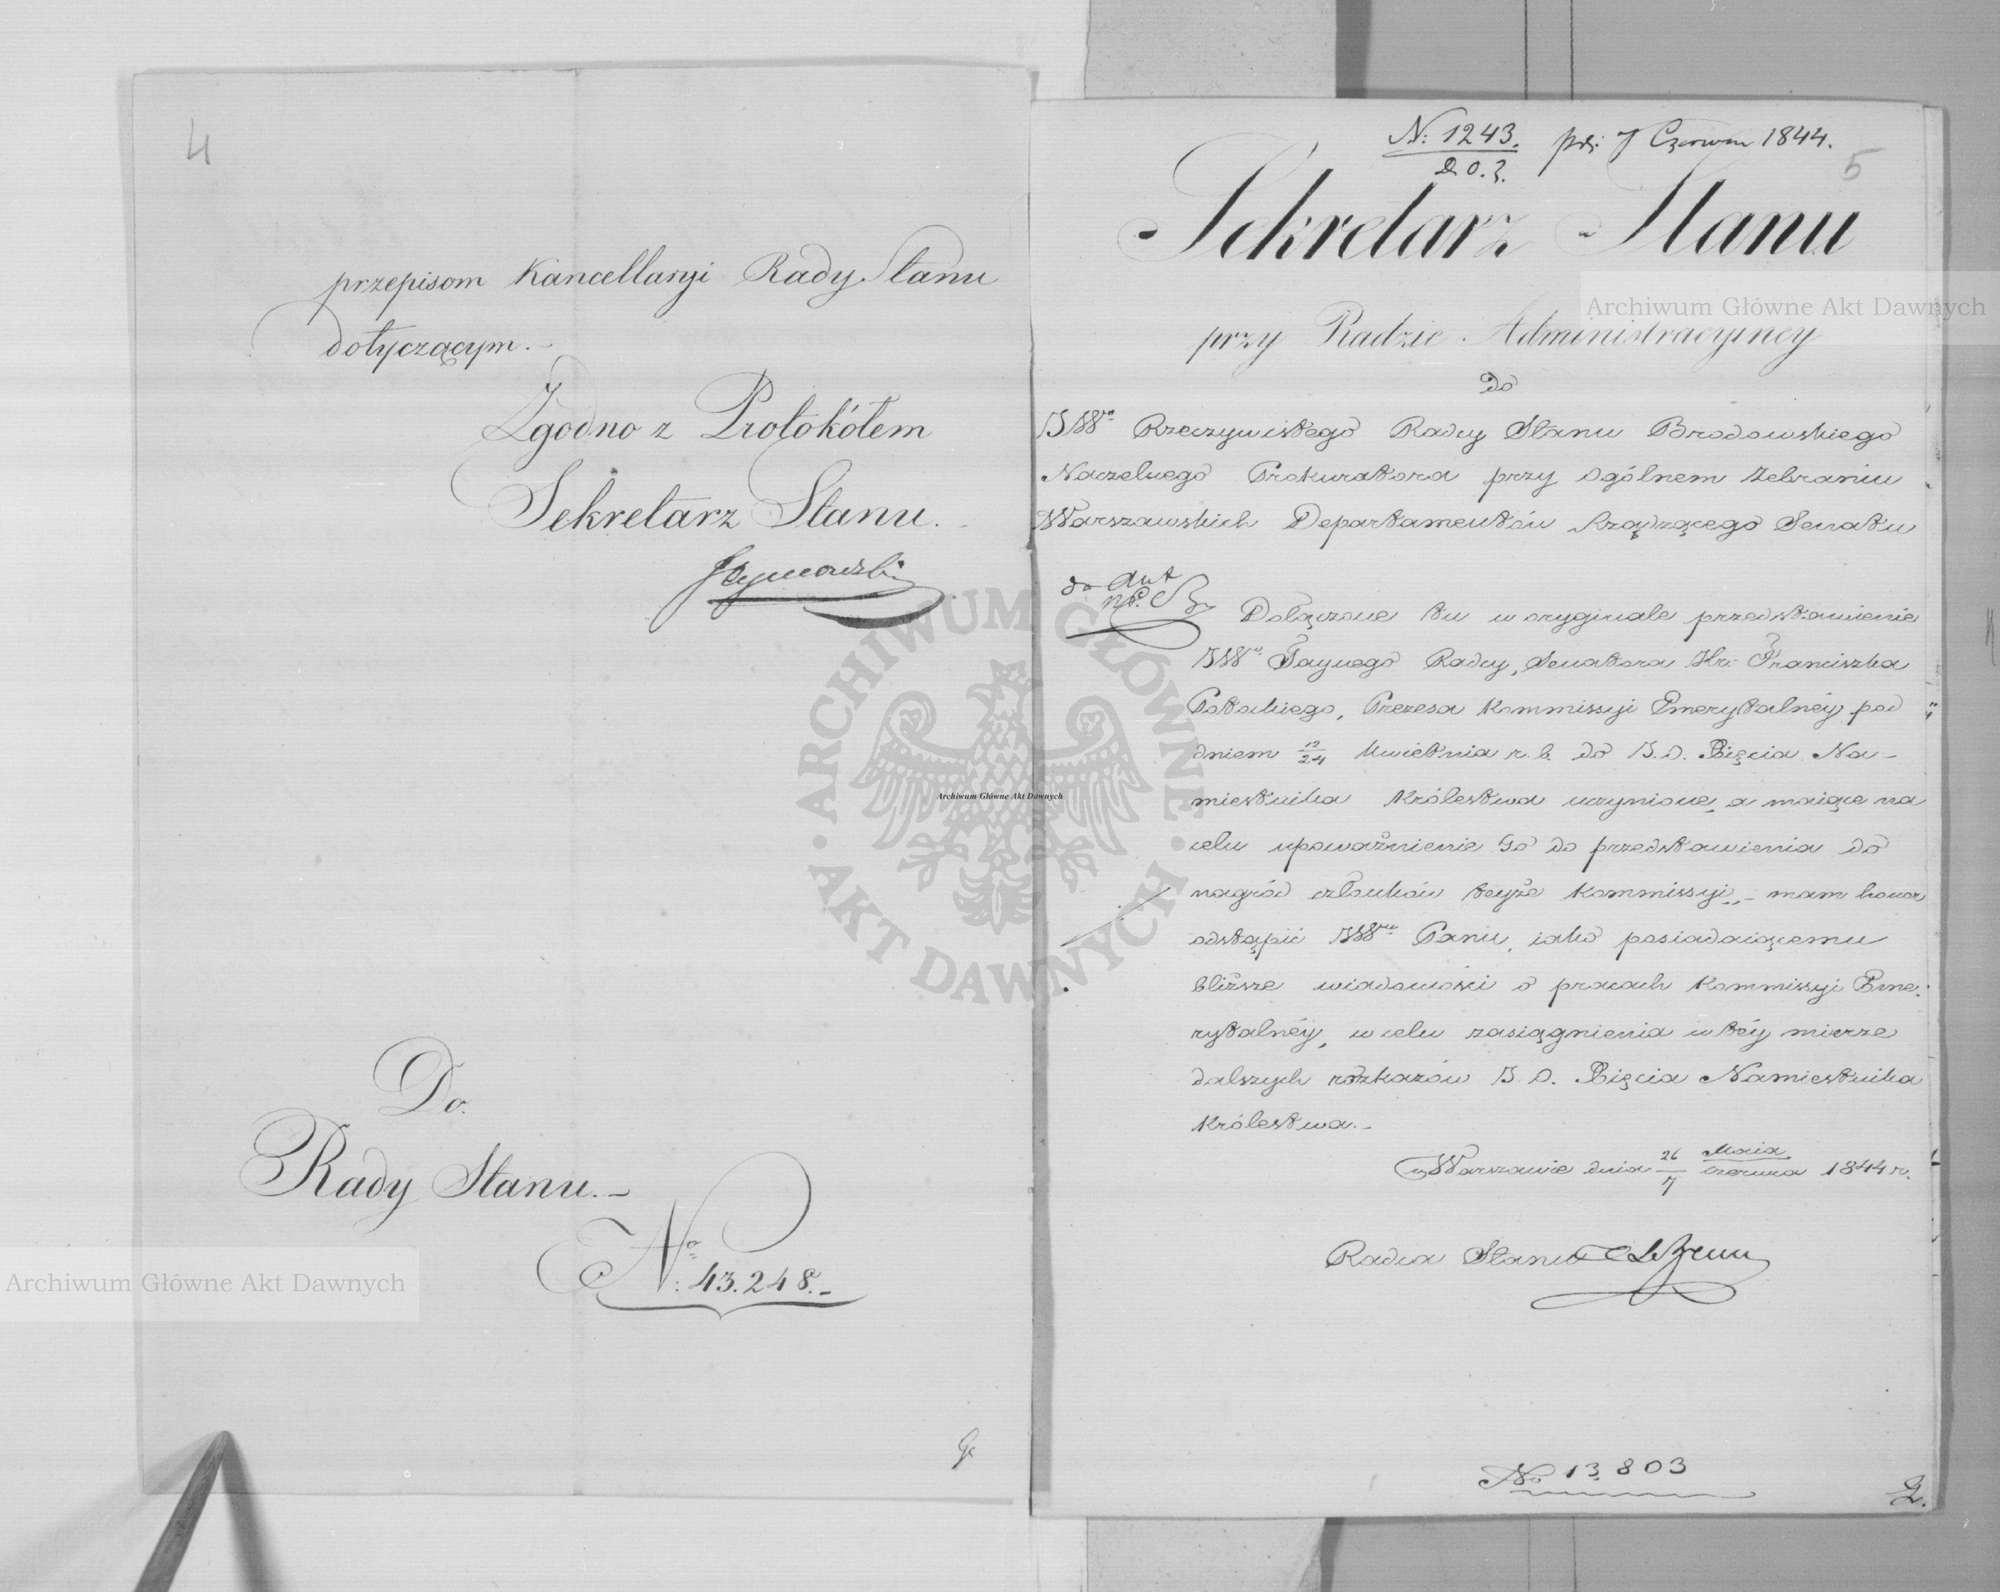 4
przepisom Kancellaryi Rady Stanu
dotyczącym.-
Zgodno z Protokółem
Sekretarz Stanu.
Do
Rady Stanu.-
No: 43.248.-
N: 1243. 7 Czerwca 1844.
5
Sekretarz Stanu
przy Radzie Administracyjney
do
JWo Rzeczywistego Radcy Stanu Brodowskiego
Naczelnego Prokuratora przy Ogólnem Zebraniu
Warszawskich Departamentów Rządzącego Senatu
do Akt
Dołączone tu w oryginale przedstawienie
JWo Taynego Radcy, Senatora Hr: Franciszka
Potockiego, Prezesa Kommissyi Emerytalnéy pod
dniem 12/24 Kwietnia r. b. do J.O. Xięcia Na-
miestnika Królestwa uczynione, a maiące na
celu upoważnienie Go do przedstawienia do
nagród członków teyże Kommissyi,- mam honor
odstąpić JWmu Panu, iako posiadaiącemu
bliższe wiadomości o pracach Kommissyi Eme-
rytalnéy, w celu zasiągnienia w téy mierze
dalszych rozkazów J.O. Xięcia Namiestnika
Królestwa.-
w Warszawie dnia 26/7 Maia/Czerwca 1844 r.
Radca Stanu
No 13803
Archiwum Główne Akt Dawnych
Archiwum Główne Akt Dawnych
Archiwum Główne Akt Dawnych
ARCHIWUM GŁÓWNE AKT DAWNYCH